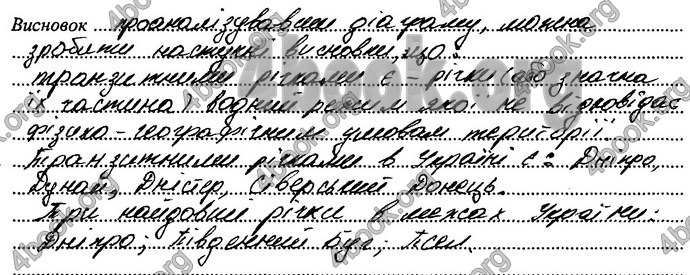 Висновок проаналізувавши діаграму, можна
зробити наступні висновки, що:
транзитними річками є – річки (або значна
їх частина) водний режим якої не відповідає
фізико-географічним умовам території.
Транзитними річками в Україні є: Дніпро,
Дунай, Дністер, Сіверський Донець.
Три найдовші річки в межах України:
Дніпро; Південний Буг; Псел.
4book.org